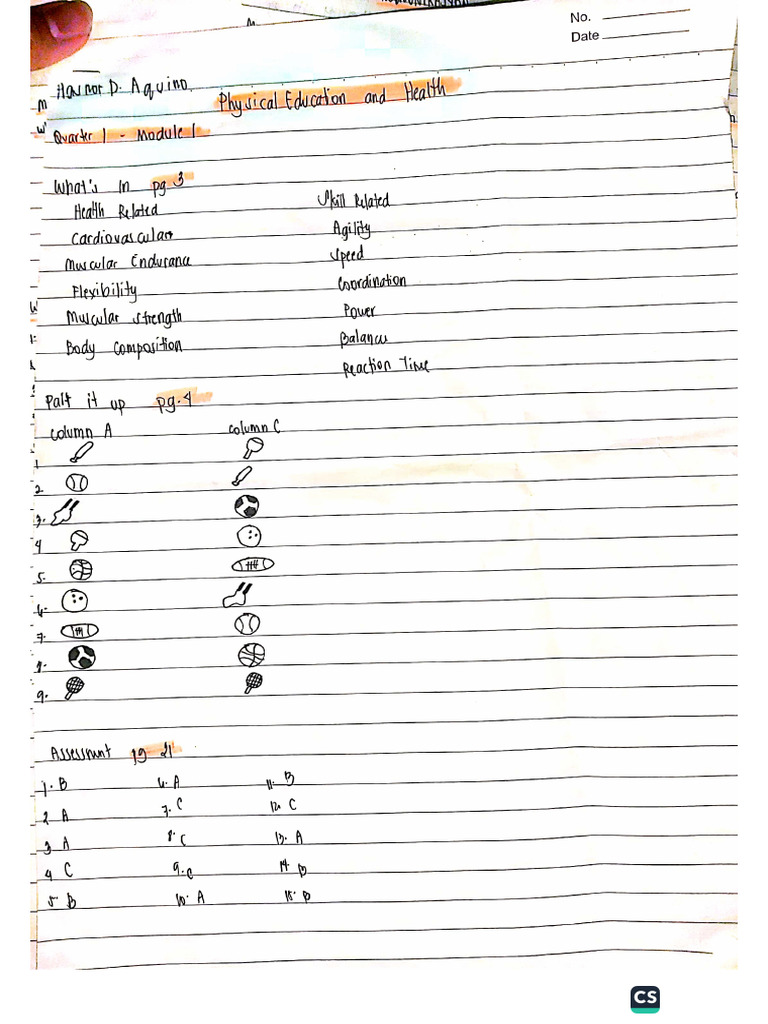 No.
Date
D. Aquino
Physical Education and Health
Quarter 1 - Module 1
What's in pg. 3
Health Related
Skill Related
Cardiovascular
Agility
Muscular Endurance
Speed
Flexibility
Coordination
Muscular strength
Power
Body Composition
Balance
Reaction Time
it up pg. 4
column A column C
1
2
3.
4
5.
6.
7.
8.
9.
Assessment pg 21
1. B 6. A 11. B
2 A 7. C 12. C
3 A 8. C 13. A
4 C 9. C 14 B
5. B 10. A 15. B
CS